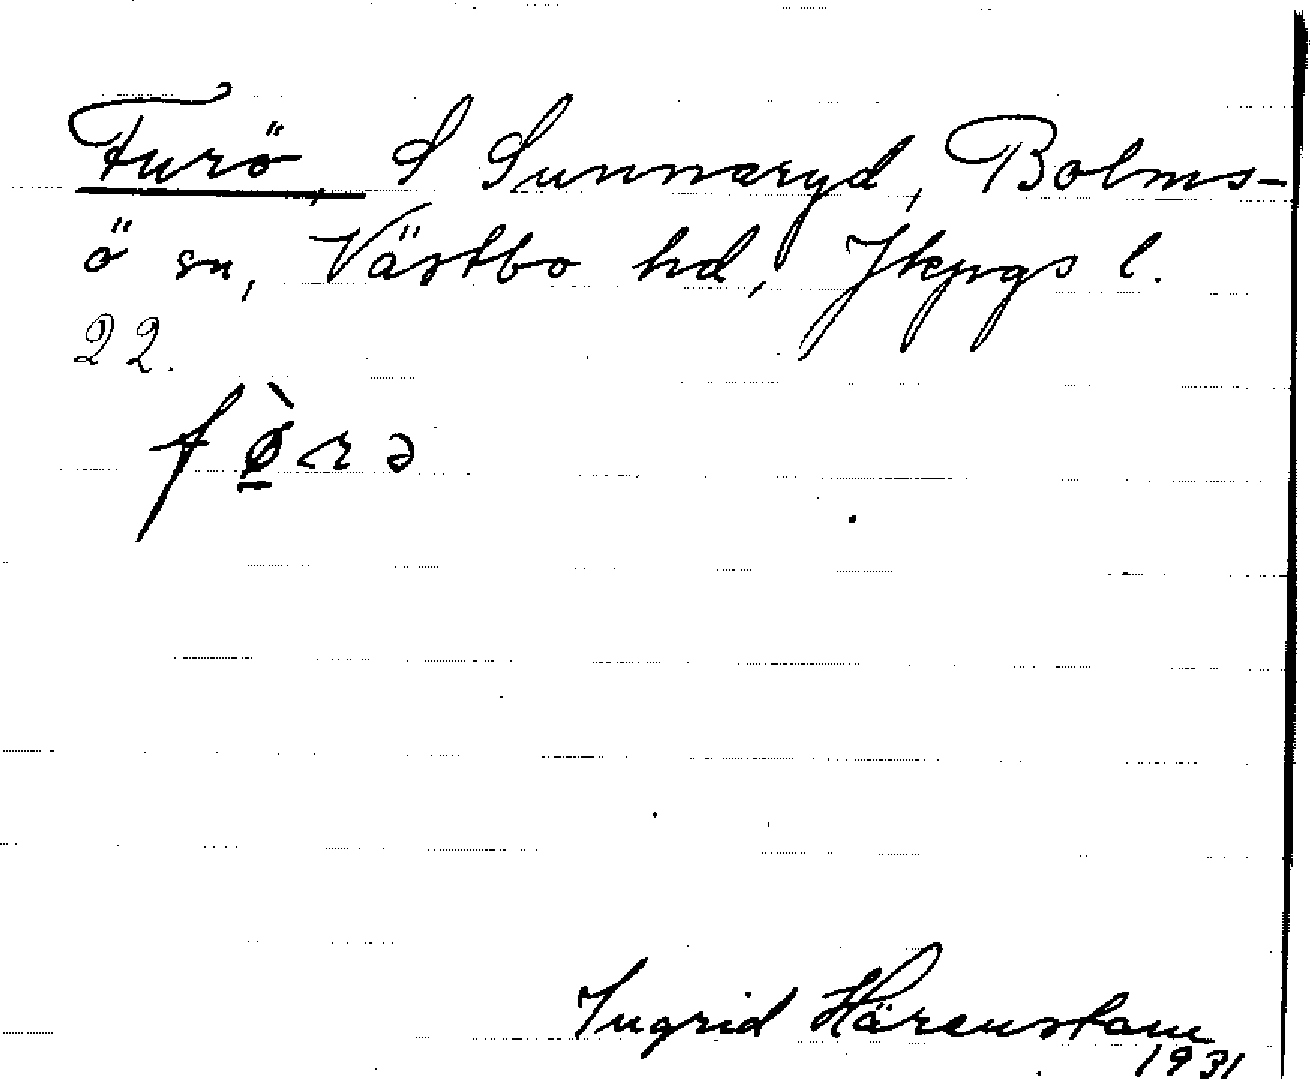 Furö, S Sunnaryd, Bolms-
ö sn, Västbo hd, Jkpgs l.
22.
Ingrid Härenstam
1931